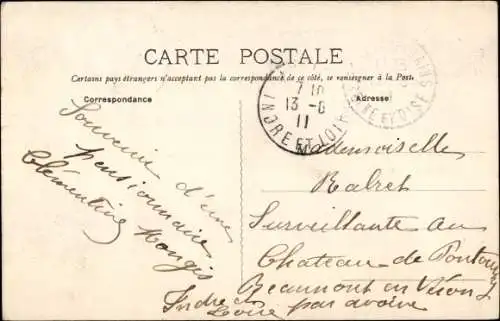 CARTE POSTALE
Certains pays étrangers n'acceptant pas la correspondance de ce côté, se renseigner à la Poste
Correspondance
Adresse
7 10
13 -6
11
INDRE ET LOIRE
SEINE ET OISE
Souvenir d'une
pensionnaire
Clémentine Mongis
Mademoiselle
Balret
Surveillante au
Chateau de
Beaumont en Véron
Indre et
Loire par avoine